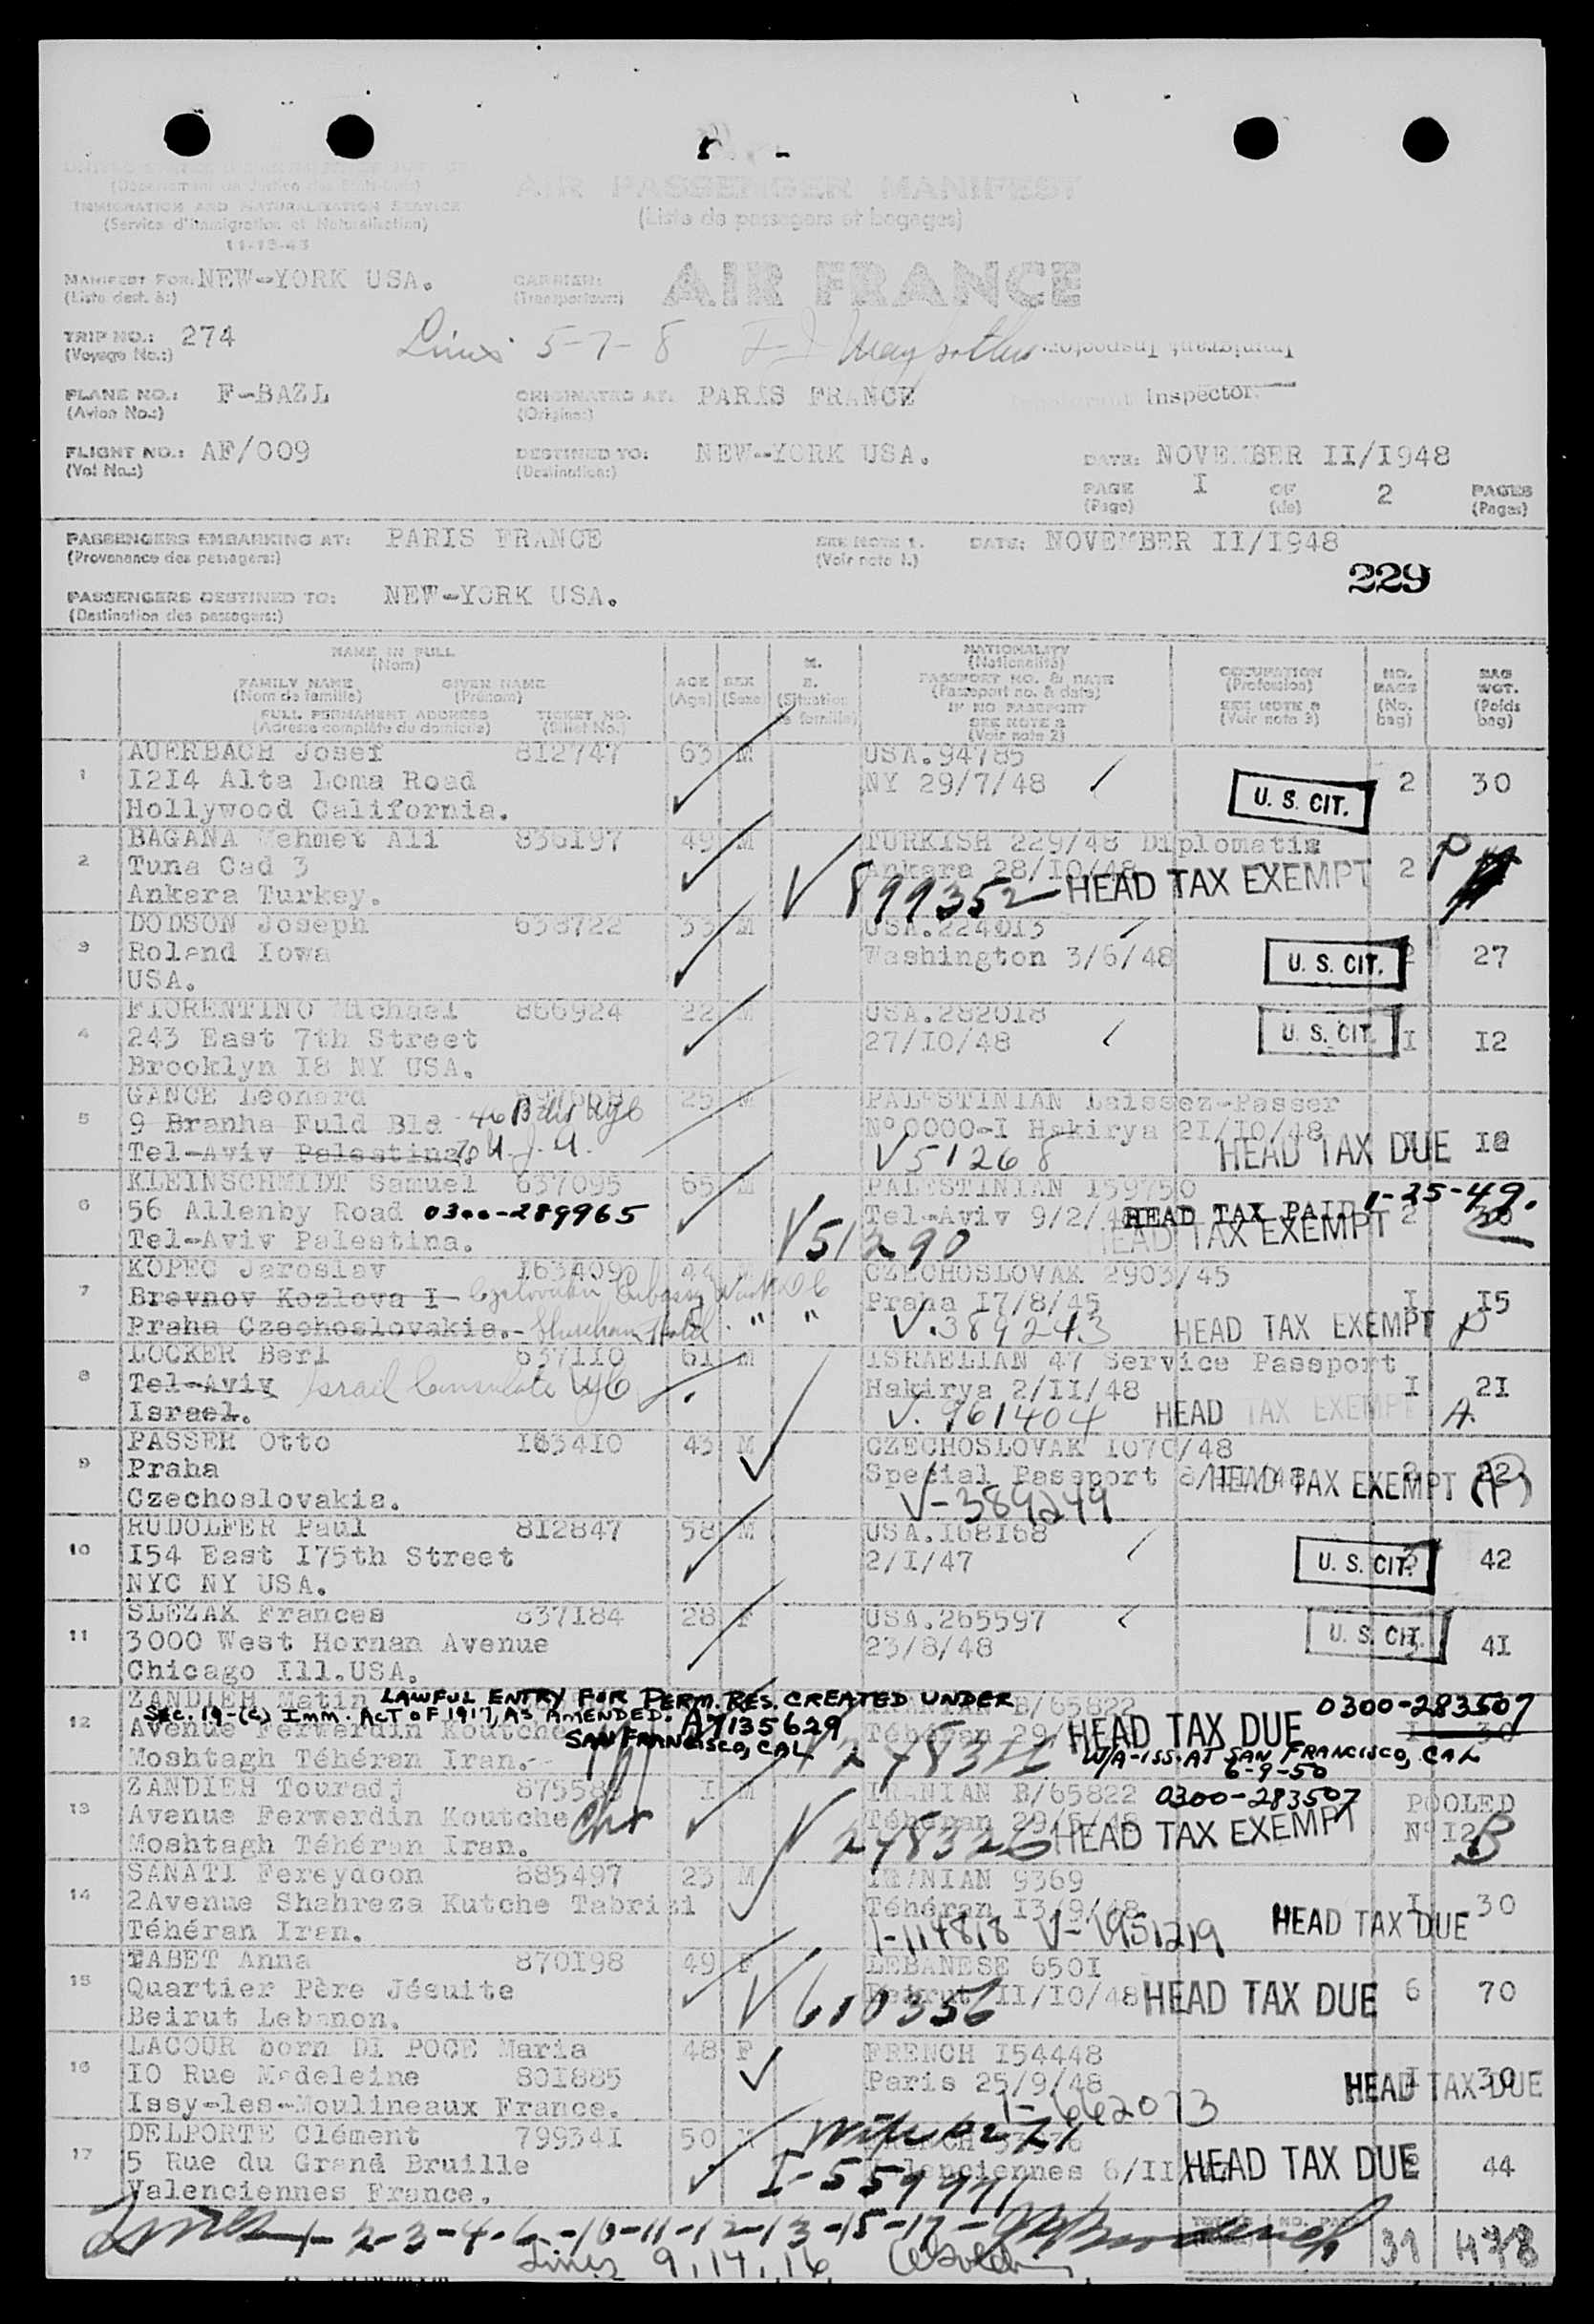 (Département de Justice des Etats-Unis)
IMMIGRATION AND NATURALIZATION SERVICE
(Service d'Immigration et Naturalisation)
11-15-45
AIR PASSENGER MANIFEST
(Liste de passagers et bagages)
MANIFEST FOR: NEW-YORK USA.
(Liste dest. à:)
CARRIER: AIR FRANCE
(Transporteur:)
TRIP NO.: 274
(Voyage No.:)
Lines 5-7-8
Immigrant Inspector
PLANE NO.: F-BAZL
(Avion No.:)
ORIGINATED AT: PARIS FRANCE
(Origine:)
Inspector
FLIGHT NO.: AF/009
(Vol No.:)
DESTINED TO: NEW-YORK USA.
(Destination:)
DATE: NOVEMBER II/I948
PAGE I OF 2 PAGES
(Page) (de) (Pages)
PASSENGERS EMBARKING AT: PARIS FRANCE
(Provenance des passagers:)
SEE NOTE 1. DATE: NOVEMBER II/I948
(Voir note 1.)
229
PASSENGERS DESTINED TO: NEW-YORK USA.
(Destination des passagers:)
NAME IN FULL
(Nom)
FAMILY NAME GIVEN NAME
(Nom de famille) (Prénom)
FULL PERMANENT ADDRESS TICKET NO.
(Adresse complète du domicile) (Billet No.)
AGE
(Age)
SEX
(Sexe)
M.
S.
(Situation
de famille)
NATIONALITY
(Nationalité)
PASSPORT NO. & DATE
(Passeport no. & date)
IF NO PASSPORT
SEE NOTE 2
(Voir note 2)
OCCUPATION
(Profession)
SEE NOTE 3
(Voir note 3)
NO.
BAGS
(No.
bag)
BAG
WGT.
(Poids
bag)
1 AUERBACH Josef 812747 63 M USA.94785
I2I4 Alta Loma Road NY 29/7/48 U. S. CIT. 2 30
Hollywood California.
2 BAGANA Mehmet Ali 836197 49 M TURKISH 229/48 Diplomatic
Tuna Cad 3 Ankara 28/IO/48 2 P
Ankara Turkey. V 899352 HEAD TAX EXEMPT
3 DODSON Joseph 638722 33 M USA.224013
Roland Iowa Washington 3/6/48 U. S. CIT. 2 27
USA.
4 FIORENTINO Michael 866924 22 M USA.282018
243 East 7th Street 27/IO/48 U. S. CIT. I I2
Brooklyn I8 NY USA.
5 GANCE Leonard 25 M PALESTINIAN Laissez-Passer
9 Branha Fuld Bld N°0000-I Hakirya 2I/IO/48
Tel-Aviv Palestina. V 51268 HEAD TAX DUE
6 KLEINSCHMIDT Samuel 637095 65 M PALESTINIAN 159750
56 Allenby Road 0300-289965 Tel-Aviv 9/2/48 HEAD TAX PAID 1-25-49. 2
Tel-Aviv Palestina. V51290 HEAD TAX EXEMPT
7 KOPEC Jaroslav 163409 44 CZECHOSLOVAK 2903/45
Brevnov Kozlova I Embassy Praha I7/8/45 I I5
Praha Czechoslovakia. - Shoreham Hotel " " V.389243 HEAD TAX EXEMPT P
8 LOCKER Berl 637110 61 M ISRAELIAN 47 Service Passport
Tel-Aviv Israel Consulate NYC Hakirya 2/II/48 I 2I
Israel. V. 961404 HEAD TAX EXEMPT A.
9 PASSER Otto 163410 43 M CZECHOSLOVAK 1070/48
Praha Special Passport HEAD TAX EXEMPT 22 (P)
Czechoslovakia. V-389244
10 RUDOLFER Paul 812847 58 M USA.168168
I54 East I75th Street 2/I/47 U. S. CIT. 42
NYC NY USA.
11 SLEZAK Frances 637184 28 F USA.265597
3000 West Hornan Avenue 23/8/48 U. S. CIT. 4I
Chicago Ill.USA.
12 ZANDIEH Matin LAWFUL ENTRY FOR PERM. RES. CREATED UNDER IRANIAN B/65822 0300-283507
SEC. 19-(c) IMM. ACT OF 1917, AS AMENDED. A7135629
Avenue Ferwerdin Koutche Téhéran HEAD TAX DUE I 30
SAN FRANCISCO, CAL.
Moshtagh Téhéran Iran. W/A-ISS. AT SAN FRANCISCO, CAL
6-9-50
13 ZANDIEH Touradj I M IRANIAN B/65822 0300-283507 POOLED
Avenue Ferwerdin Koutche Téhéran 29/5/48 N°I2
Moshtagh Téhéran Iran. V 248326 HEAD TAX EXEMPT B
14 SANATI Fereydoon 885497 23 M IRANIAN 9369
2Avenue Shahreza Kutche Tabrizi Téhéran I3/9/48 I 30
Téhéran Iran. I-114818 V-1951219 HEAD TAX DUE
15 TABET Anna 870198 49 F LEBANESE 650I
Quartier Père Jésuite Beirut II/IO/48 HEAD TAX DUE 6 70
Beirut Lebanon. V 610356
16 LACOUR born DI POCE Maria 48 F FRENCH I54448
IO Rue Madeleine 801885 Paris 25/9/48 HEAD TAX DUE I 30
Issy-les-Moulineaux France. I-662073
17 DELPORTE Clément 799341 50 M FRENCH
5 Rue du Grand Bruille Valenciennes 6/II HEAD TAX DUE 44
Valenciennes France. I-559971
Lines 1-2-3-4-6-10-11-12-13-15-17-
Lines 9, 14, 16